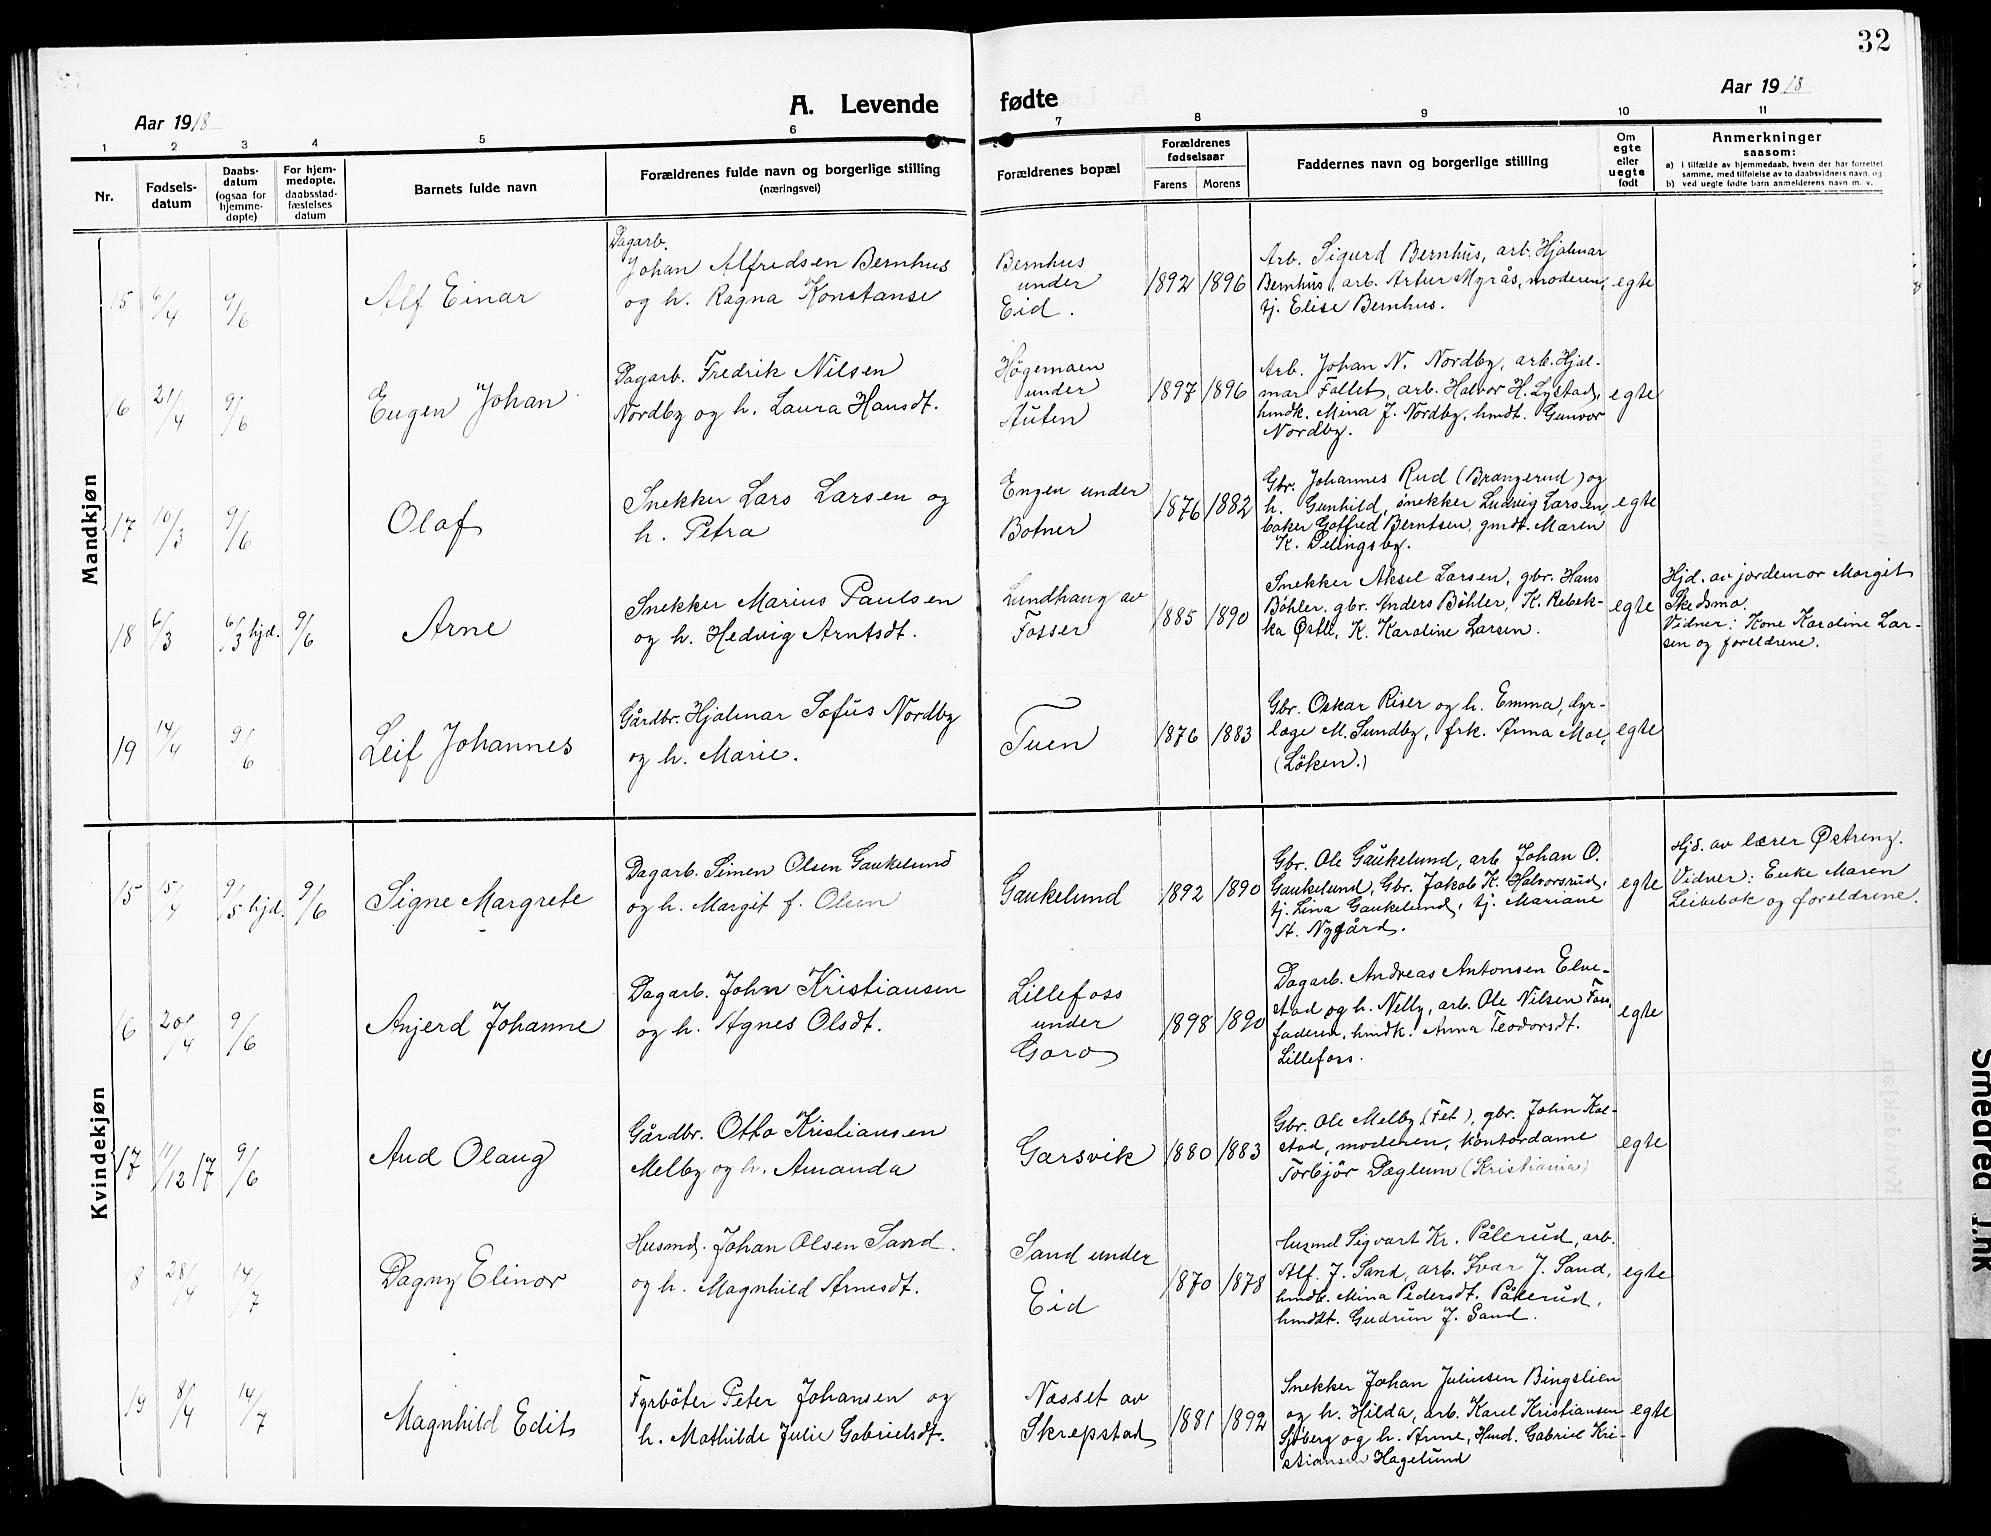 32
Aar 1918
A. Levende fødte
Aar 1918
1 2 3 4 5 6 7 8 9 10 11
Nr.
Fødsels-
datum
Daabs-
datum
(ogsaa for
hjemme-
døpte)
For hjem-
medøpte,
daabsstad-
fæstelses
datum
Barnets fulde navn
Forældrenes fulde navn og borgerlige stilling
(næringsvei)
Forældrenes bopæl
Forældrenes
fødselsaar
Farens Morens
Faddernes navn og borgerlige stilling
Om
egte
eller
uegte
født
Anmerkninger
saasom:
a) i tilfælde av hjemmedaab, hvem der har forrettet
samme, med tilføielse av to daabsvidners navn, og
b) ved uegte fødte barn anmelderens navn m. v.
Mandkjøn
15 6/4 9/6
Alf Einar
Dagarb.
Johan Alfredsen Bernhus
og h. Ragna Konstanse
Bernhus
under
Eid.
1892 1896
Arb. Sigurd Bernhus, arb. Hjalmar
Bernhus, arb. Artur Myrås, moderen,
tj. Elise Bernhus.
egte
16 21/4 9/6
Eugen Johan
Dagarb. Fredrik Nilsen
Nordby og h. Laura Hansdt.
Høgemoen
under
Auten
1897 1896
Arb. Johan N. Nordby, arb. Hjal-
mar Fallet, arb. Halvor H. Lystad,
hmdk. Mina J. Nordby, hmdt. Gunvor
Nordby.
egte
17 10/3 9/6
Olaf
Snekker Lars Larsen og
h. Petra
Engen under
Botner
1876 1882
Gbr. Johannes Rud (Brangerud) og
h. Gunhild, snekker Ludvig Larsen,
baker Gotfred Berntsen, gmdt. Maren
K. Delingsby.
egte
18 6/3 6/3 hjd. 9/6
Arne
Snekker Marius Paulsen
og h. Hedvig Arntsdt.
Lundhaug av
Fosser
1885 1890
Snekker Aksel Larsen, gbr. Hans
Böhler, gbr. Anders Böhler, K. Rebek-
ka Østli, K. Karoline Larsen.
egte
Hjd. av jordemor Margit
Skedsmo.
Vidner: Kone Karoline Lar-
sen og foreldrene.
19 14/4 9/6
Leif Johannes
Gårdbr. Hjalmar Sofus Nordby
og h. Marie.
Tuen
1876 1883
Gbr. Oskar Riser og h. Emma, dyr-
læge M. Sundby, frk. Anna Moe,
(Löken.)
egte
Kvindekjøn
15 15/4 9/5 hjd. 9/6
Signe Margrete
Dagarb. Simen Olsen Gaukelund
og h. Margit f. Olsen
Gaukelund
1892 1890
Gbr. Ole Gaukelund, arb Johan O.
Gaukelund, Gbr. Jakob K. Halvorsrud,
tj. Lina Gaukelund, tj. Mariane
A. Nygård.
egte
Hjd. av lærer Østreng.
Vidner: Enke Maren
og foreldrene.
16 20/4 9/6
Anjerd Johanne
Dagarb. John Kristiansen
og h. Agnes Olsdt.
Lillefoss
under
Goro
1898 1890
Dagarb. Andreas Antonsen Elve-
stad og h. Nelly, arb. Ole Nilsen Foss,
faderen, hmdk. Anna Teodorsdt.
Lillefoss.
egte
17 11/12 17 9/6
Aud Olaug
Gårdbr. Otto Kristiansen
Melby og h. Amanda
Garsvik
1880 1883
Gbr. Ole Melby (Fet), gbr. John Kol-
stad, moderen, kontordame
Torbjör Dæglum (Kristiania)
egte
18 28/4 14/7
Dagny Elinor
Husmd. Johan Olsen Sand.
og h. Magnhild Arnesdt.
Sand under
Eid
1870 1878
Husmd Sigvart Kr. Pålerud, arb.
Alf. J. Sand, arb. Ivar J. Sand,
hmdk. Mina Pedersdt. Pålerud,
hmdt. Gudrun J. Sand.
egte
19 8/4 14/7
Magnhild Edit
Fyrböter Peter Johansen og
h. Mathilde Julie Gabrielsdt.
Næsset av
Skrepstad
1881 1892
Snekker Johan Juliusen Bingslien
og h. Hilda, arb. Karel Kristiansen
Sjöberg og h. Anne, Hmd. Gabriel Kri-
stiansen Hagelund
egte